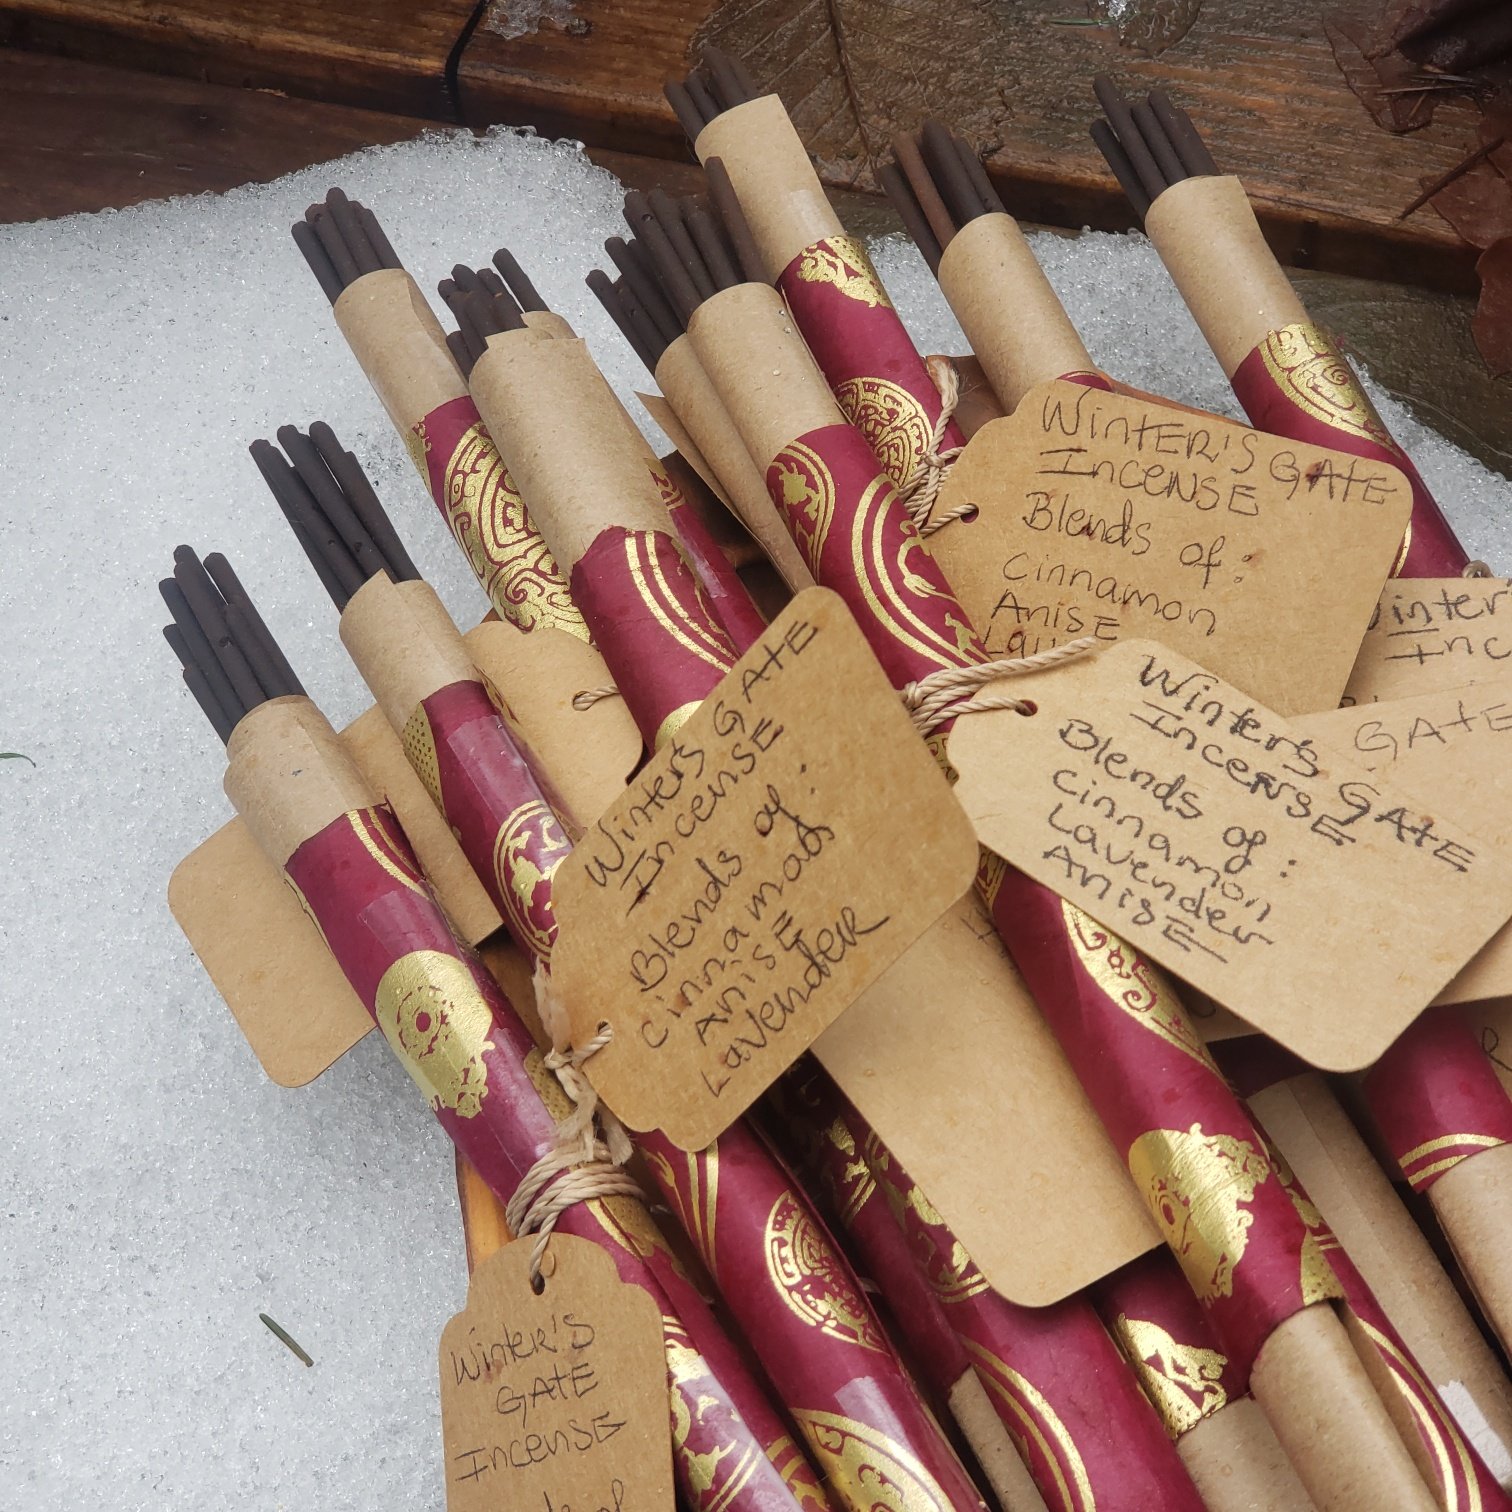 WINTER'S GATE
INCENSE
Blends of:
Cinnamon
ANISE
Winter's GATE
INCENSE
Blends of:
Cinnamon
Lavender
ANISE
Winter's GATE
INCENSE
Blends of:
cinnamon
ANISE
LAVENDER
WINTER'S
GATE
INCENSE
GATE